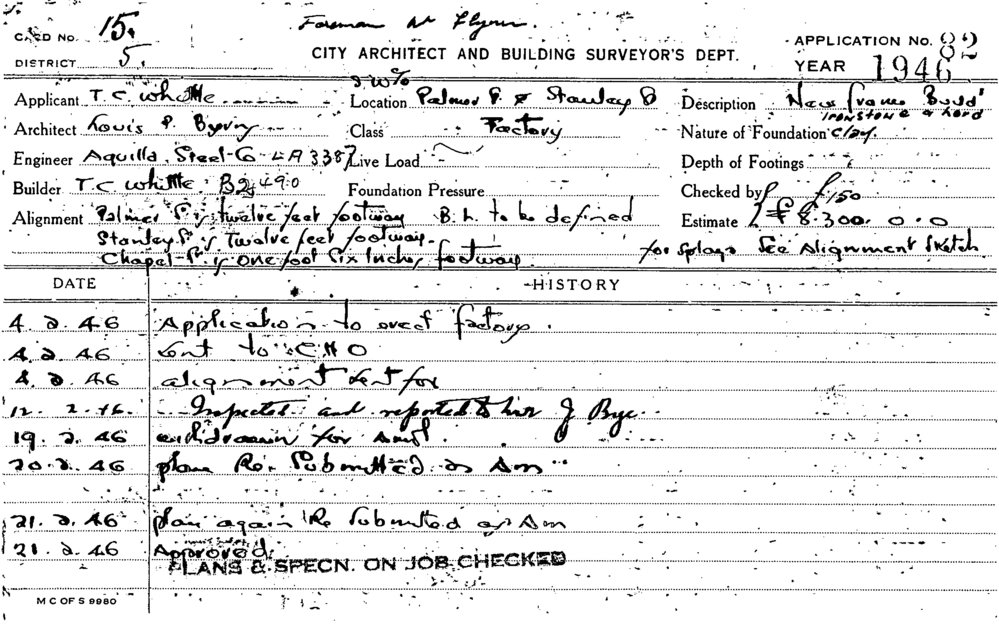 CARD No. 15. Foreman Mr Flynn.
DISTRICT 5. CITY ARCHITECT AND BUILDING SURVEYOR'S DEPT. APPLICATION No. 82
YEAR 1946
Applicant T. C. Whittle Location Palmer St & Stanley St Description New frame Build'
Ironstone & hard
Architect Louis P. Byrne Class Factory Nature of Foundation Clay.
Engineer Aquilla Steel Co LA 3387 Live Load Depth of Footings
Builder T. C. Whittle. B2490 Foundation Pressure Checked by £150
Alignment Palmer St is twelve feet footway B. L. to be defined Estimate £8.300. 0.0
Stanley St is Twelve feet footway. for splays See Alignment Sketch
Chapel St is One foot Six Inches footway
DATE HISTORY
4. 2. 46 Application to erect factory.
4. 2. 46 Sent to C H O
4. 2. 46 alignment sent for
12. 2. 46 Inspected and reported to J Bye
19. 2. 46 withdrawn for Amt.
20. 2. 46 plan Re. Submitted as Am
21. 2. 46 plan again Re Submitted as Am
21. 2. 46 Approved.
PLANS & SPECN. ON JOB CHECKED
M C OF S 9980